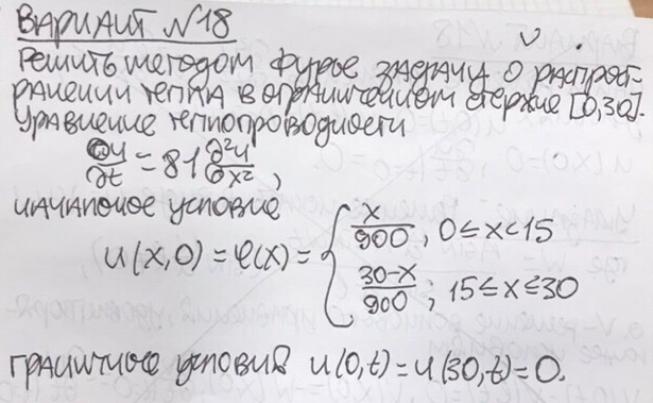 ВАРИАНТ №18
Решить методом Фурье задачу о распрост-
ранении тепла в ограниченном стержне [0,30].
Уравнение теплопроводности
∂u/∂t = 81 ∂²u/∂x² ,
начальное условие
u(x,0) = φ(x) = { x/900 , 0 ≤ x < 15
30-x/900 ; 15 ≤ x ≤ 30
граничные условия u(0,t) = u(30,t) = 0.